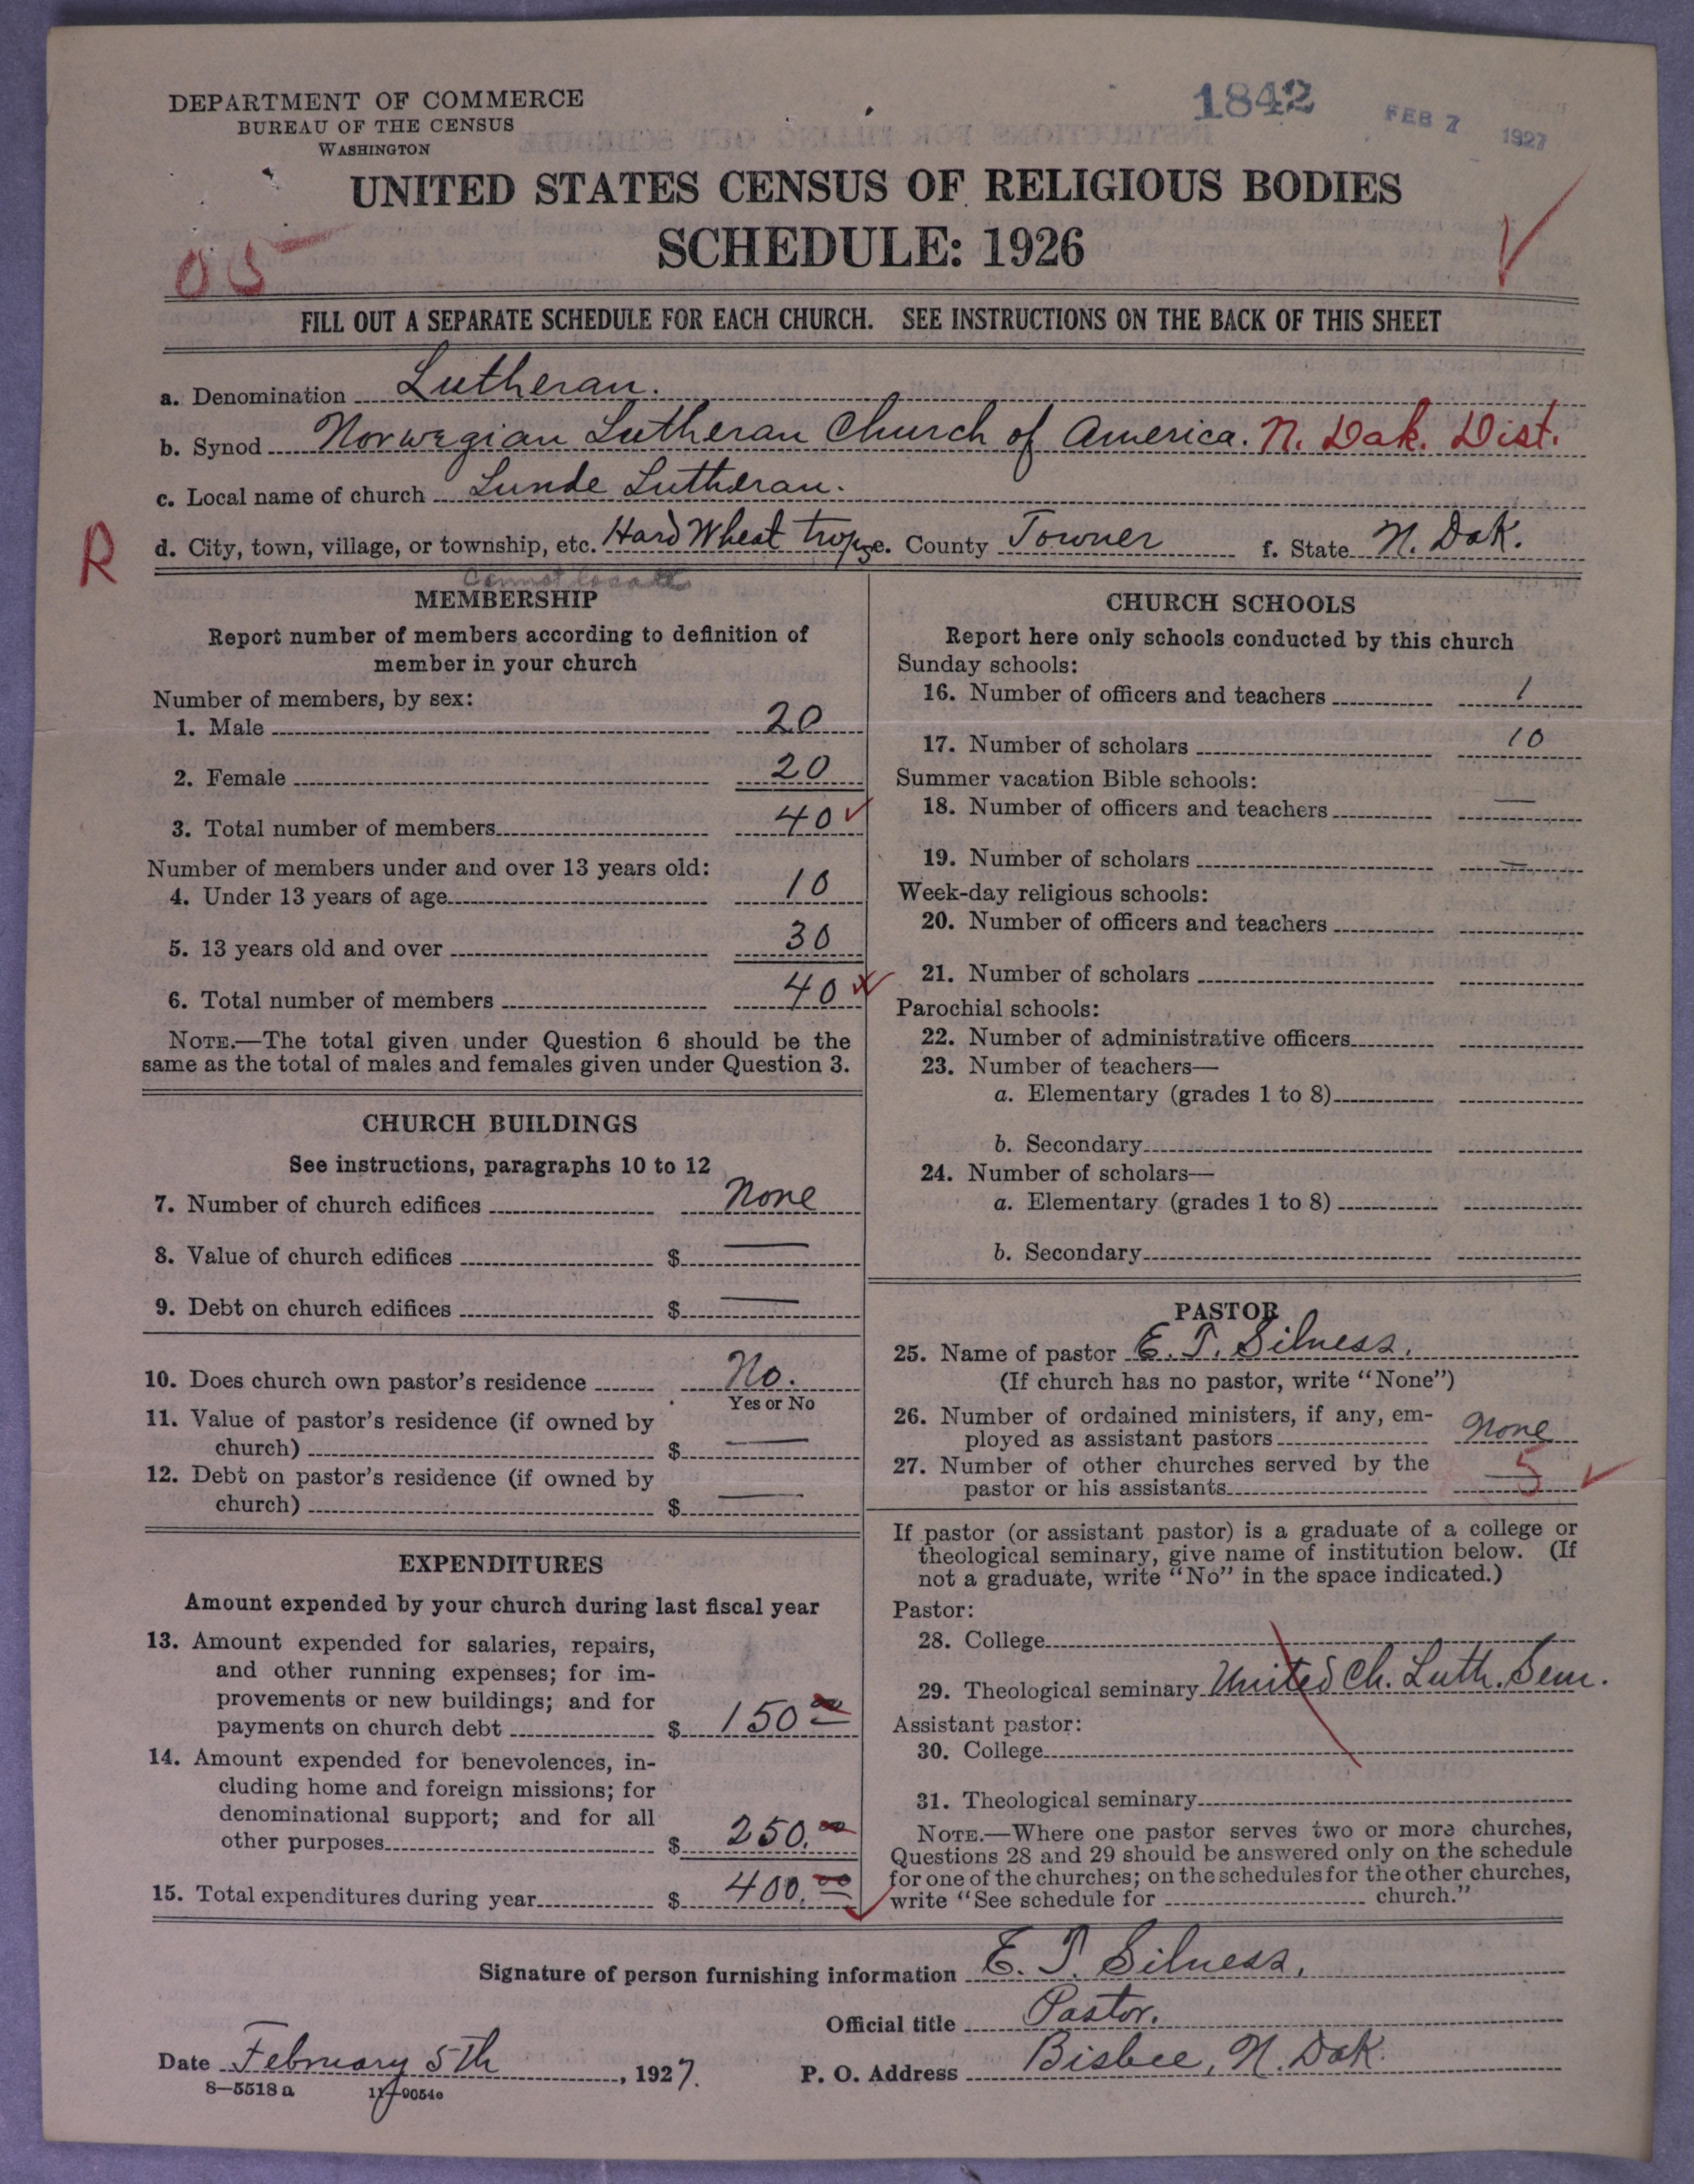 DEPARTMENT OF COMMERCE
BUREAU OF THE CENSUS
WASHINGTON
1842
FEB 7 1927
UNITED STATES CENSUS OF RELIGIOUS BODIES
SCHEDULE: 1926
05
FILL OUT A SEPARATE SCHEDULE FOR EACH CHURCH. SEE INSTRUCTIONS ON THE BACK OF THIS SHEET
a. Denomination Lutheran.
b. Synod Norwegian Lutheran Church of America. N. Dak. Dist.
c. Local name of church Lunde Lutheran.
R
d. City, town, village, or township, etc. Hard Wheat e. County Towner f. State N. Dak.
Cannot locate
MEMBERSHIP
Report number of members according to definition of
member in your church
Number of members, by sex:
1. Male 20
2. Female 20
3. Total number of members 40
Number of members under and over 13 years old:
4. Under 13 years of age 10
5. 13 years old and over 30
6. Total number of members 40
NOTE.—The total given under Question 6 should be the
same as the total of males and females given under Question 3.
CHURCH BUILDINGS
See instructions, paragraphs 10 to 12
7. Number of church edifices None
8. Value of church edifices $ —
9. Debt on church edifices $ —
10. Does church own pastor's residence No.
Yes or No
11. Value of pastor's residence (if owned by
church) $ —
12. Debt on pastor's residence (if owned by
church) $ —
EXPENDITURES
Amount expended by your church during last fiscal year
13. Amount expended for salaries, repairs,
and other running expenses; for im-
provements or new buildings; and for
payments on church debt $ 150 00
14. Amount expended for benevolences, in-
cluding home and foreign missions; for
denominational support; and for all
other purposes $ 250.00
15. Total expenditures during year $ 400.00
CHURCH SCHOOLS
Report here only schools conducted by this church
Sunday schools:
16. Number of officers and teachers 1
17. Number of scholars 10
Summer vacation Bible schools:
18. Number of officers and teachers —
19. Number of scholars —
Week-day religious schools:
20. Number of officers and teachers
21. Number of scholars
Parochial schools:
22. Number of administrative officers
23. Number of teachers—
a. Elementary (grades 1 to 8)
b. Secondary
24. Number of scholars—
a. Elementary (grades 1 to 8)
b. Secondary
PASTOR
25. Name of pastor E. T. Silness.
(If church has no pastor, write "None")
26. Number of ordained ministers, if any, em-
ployed as assistant pastors None
27. Number of other churches served by the
pastor or his assistants 5
If pastor (or assistant pastor) is a graduate of a college or
theological seminary, give name of institution below. (If
not a graduate, write "No" in the space indicated.)
Pastor:
28. College
29. Theological seminary United Ch. Luth. Sem.
Assistant pastor:
30. College
31. Theological seminary
NOTE.—Where one pastor serves two or more churches,
Questions 28 and 29 should be answered only on the schedule
for one of the churches; on the schedules for the other churches,
write "See schedule for church."
Signature of person furnishing information E. T. Silness.
Official title Pastor.
Date February 5th, 1927.
P. O. Address Bisbee, N. Dak.
8—5518 a
11—9054a